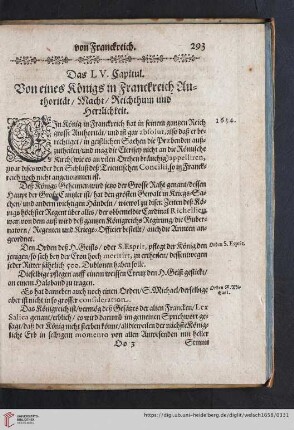 von Franckreich. 293
Das LV. Capitul.
Von eines Königs in Franckreich Au-
thorität / Macht / Reichthum und
Herrlichkeit.
EIn König in Franckreich hat in seinem gantzen Reich
grosse Authorität / und ist gar absolut, also daß er be-
rechtiget / in geistlichen Sachen die Pfründen auß-
zutheilen / und mag die Clerisey nicht an die Römische
Kirch / wie es an andern Orthen bräuchig / appelliren,
zwar dieweil der Schluß deß Trienischen Concilii, so in Franck-
reich noch nicht angenommen ist.
1654.
Deß Königs Geheimraht und jetzo der Grosse Raht genant / dessen
Haupt der Groß-Cantzler ist / hat den grossen Gewalt in Kriegs-Sa-
chen / und andern wichtigen Händeln / wiewol zu dieser Zeiten deß Kö-
nigs höchster Regent über alles / der obbemelte Cardinal Richelieu,
von dem dann auß wird deß gantzen Königreichs Regierung / die Guber-
natorn / Regenten und Kriegs-Officier bestellt / auch die Armeen an-
geordnet.
Den Orden deß H. Geists / oder S. Esprit, pfleget der König den-
jenigen / so sich bey der Cron hoch meritirt, zu ertheilen / dessentwegen
jeder Ritter jährlich 500. Duplonen haben solle.
Orden S. Esprit.
Dieselbige pfleget auff einem weissen Creutz den H. Geist gestickt /
an einem Halsband zu tragen.
Es hat darneben auch noch einen Orden / S. Michael / derselbige
aber ist nicht in so grosser consideration.
Orden S. Mi-
chael.
Das Königreich ist / vermög deß Gesatzes der alten Francken / Lex
Salica genant / erblich / es wird darumb im gemeinen Sprichwort ge-
sagt / daß der König nicht sterben könne / alldieweilen der nächste König-
liche Erb in selbigem momento von allen Anwesenden mit heller
Oo 3 Stimm
HEIDELBERG
https://digi.ub.uni-heidelberg.de/diglit/welsch1658/0331